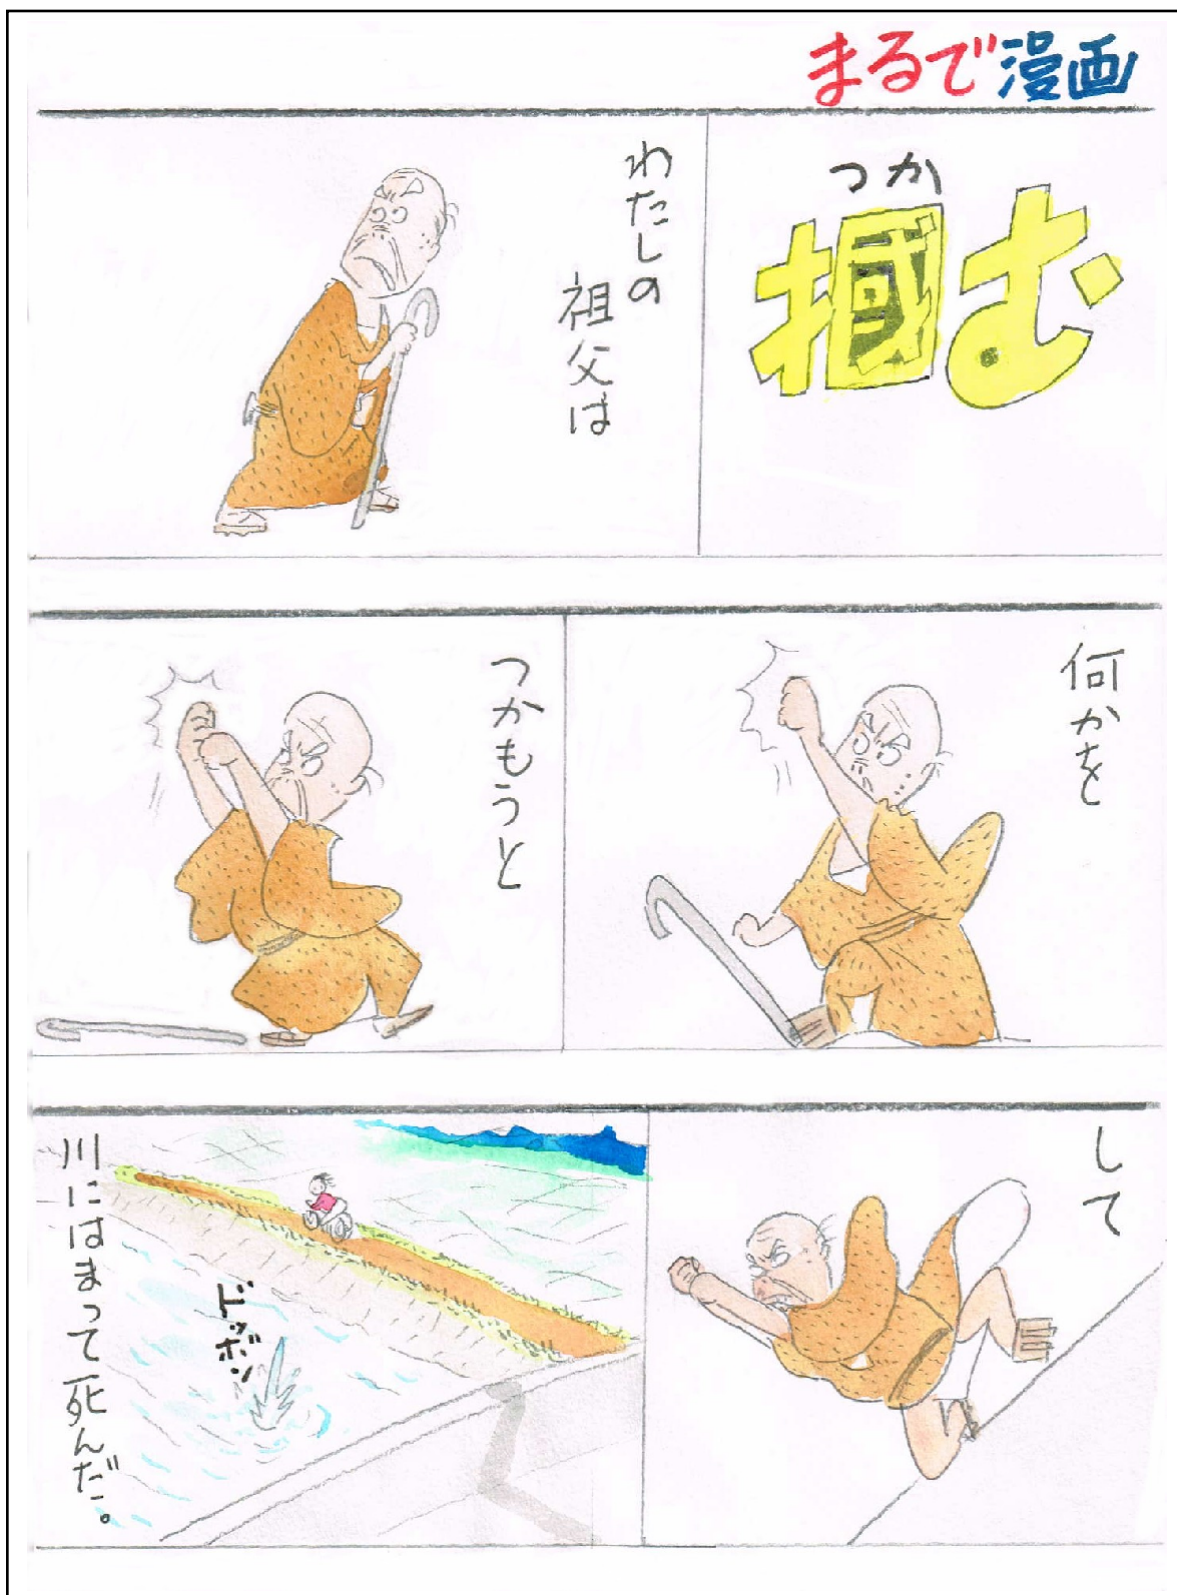 まるで漫画
つか
掴む
わたしの
祖父は
何かを
つかもうと
して
ドッボン
川にはまって死んだ。